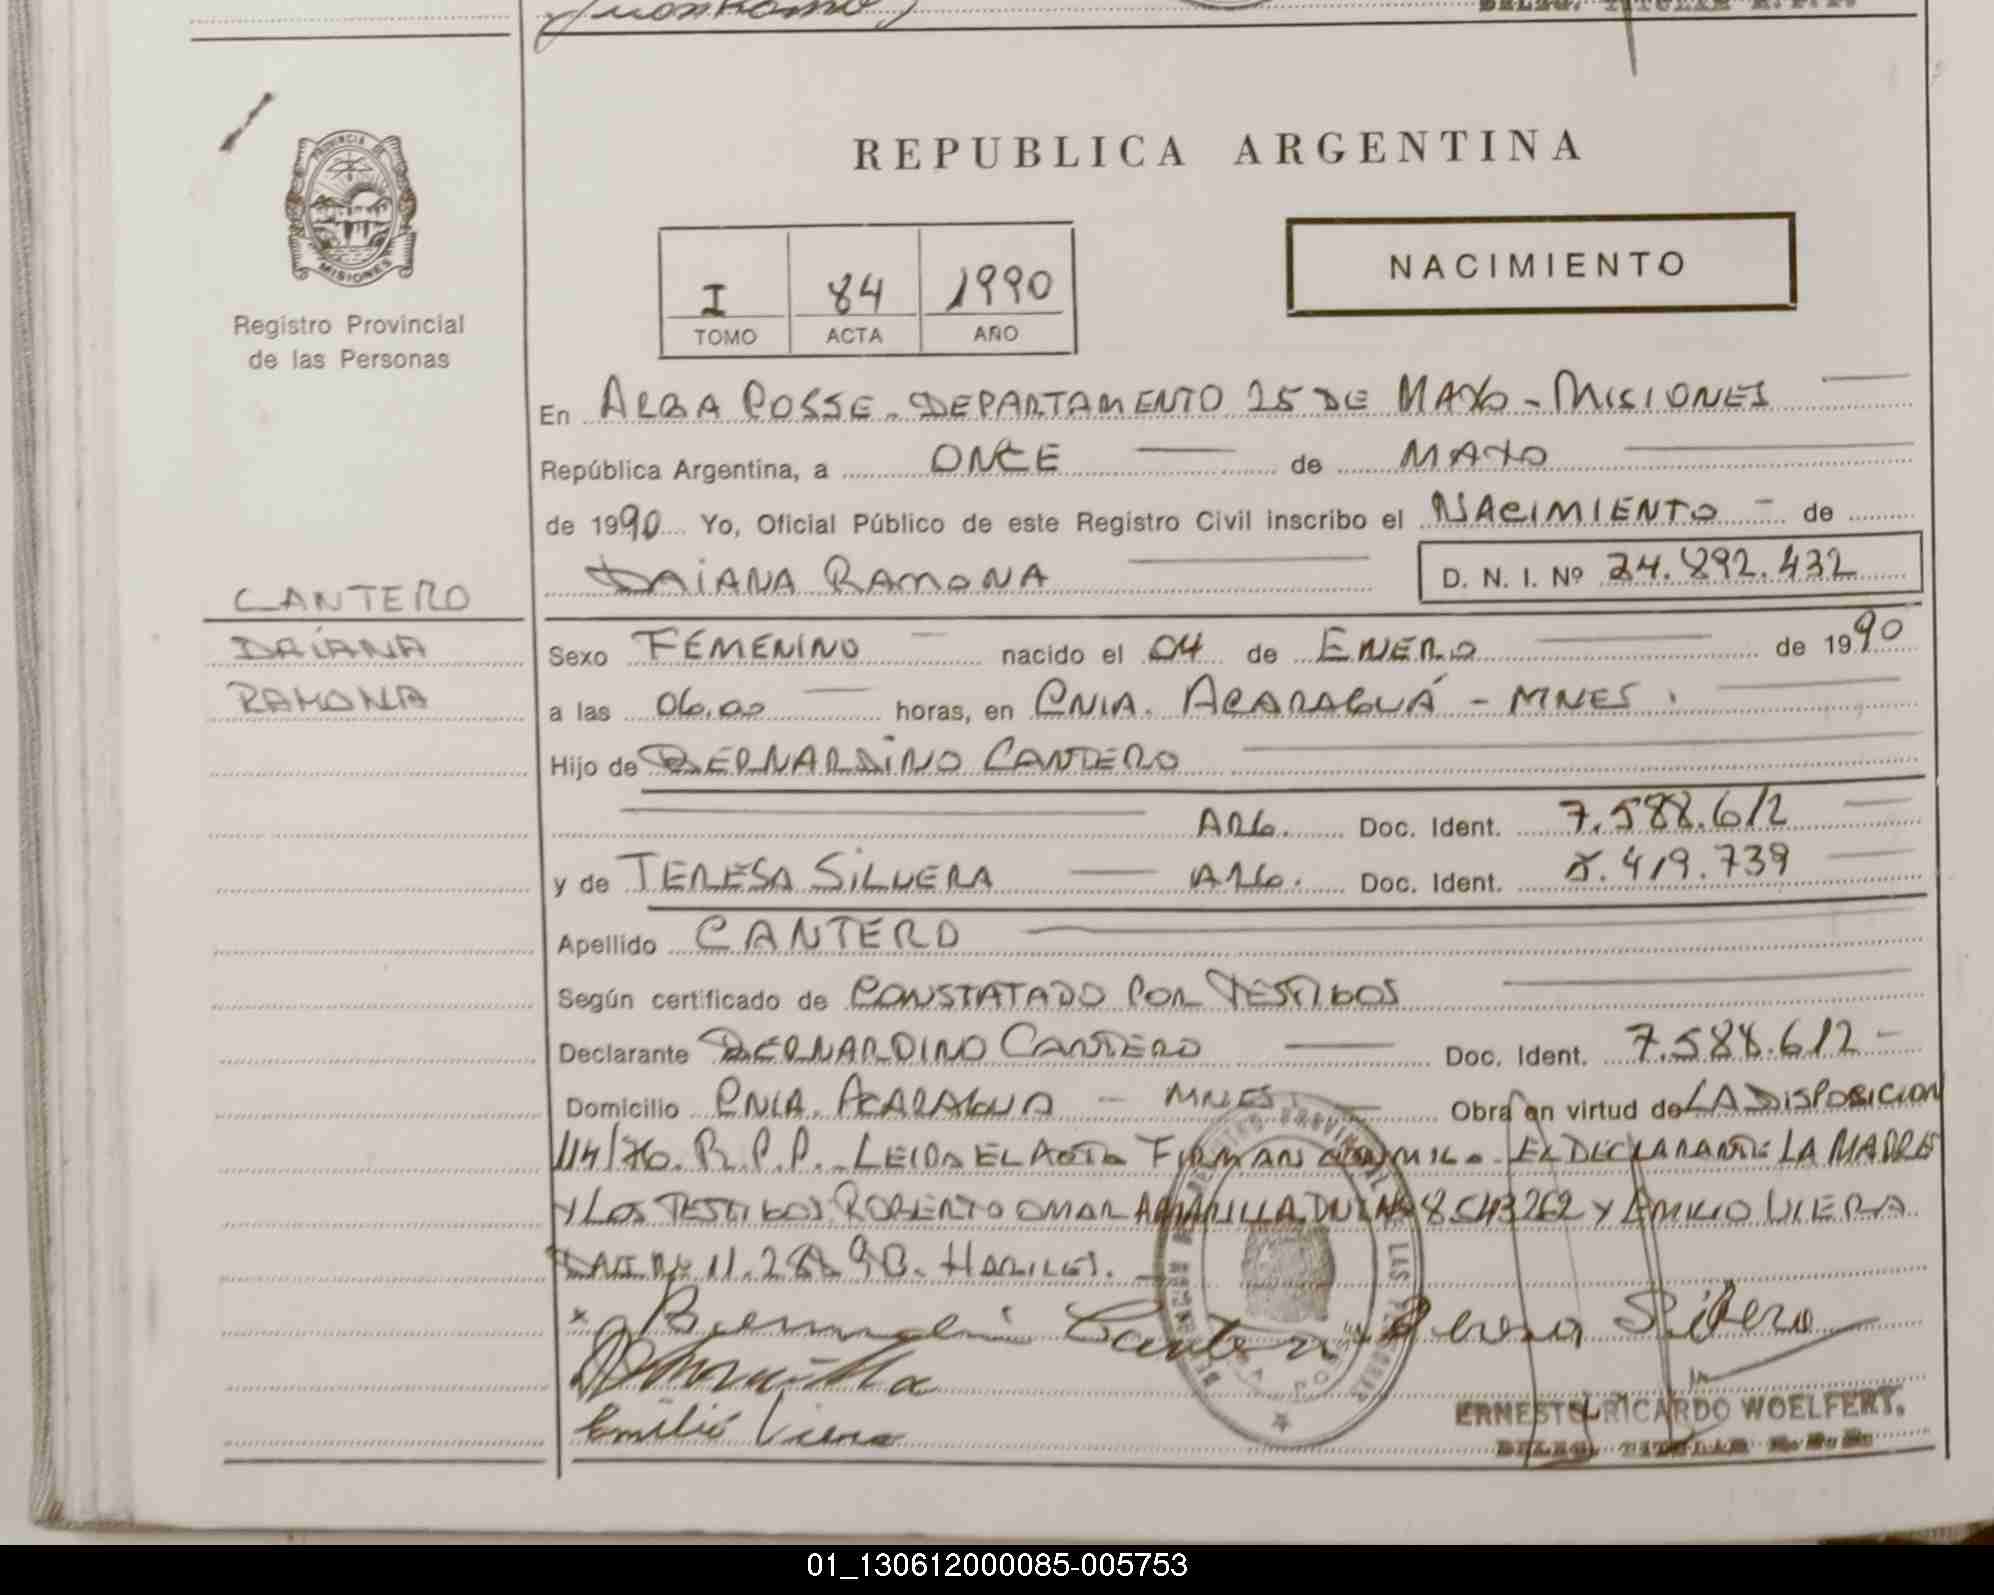 REPUBLICA ARGENTINA
PROVINCIA DE
MISIONES
Registro Provincial
de las Personas
I 84 1990
TOMO ACTA AÑO
NACIMIENTO
En ALBA POSSE - DEPARTAMENTO 25 DE MAYO - MISIONES
República Argentina, a ONCE de MAYO
de 1990 Yo, Oficial Público de este Registro Civil inscribo el NACIMIENTO - de
DAIANA RAMONA D. N. I. Nº 34.892.432
CANTERO
DAIANA
RAMONA
Sexo FEMENINO nacido el 04 de ENERO de 1990
a las 06,00 horas, en CNIA. ACARAGUÁ - MNES.
Hijo de BERNARDINO CANTERO
ARG. Doc. Ident. 7.588.612
y de TERESA SILVERA ARG. Doc. Ident. 419.739
Apellido CANTERO
Según certificado de CONSTATADO POR TESTIGOS
Declarante BERNARDINO CANTERO Doc. Ident. 7.588.612 -
Domicilio CNIA. ACARAGUA - MNES. Obra en virtud de LA DISPOSICION
114/76. R.P.P. LEIDA EL ACTA FIRMAN CONMIGO EL DECLARANTE LA MADRE
Y LOS TESTIGOS ROBERTO OMAR AMARILLA DNI Nº Y EMILIO VIERA
DNI Nº
Cantero
Emilio Viera
ERNESTO RICARDO WOELFERT.
DELEG. TITULAR R.P.P.
01_130612000085-005753